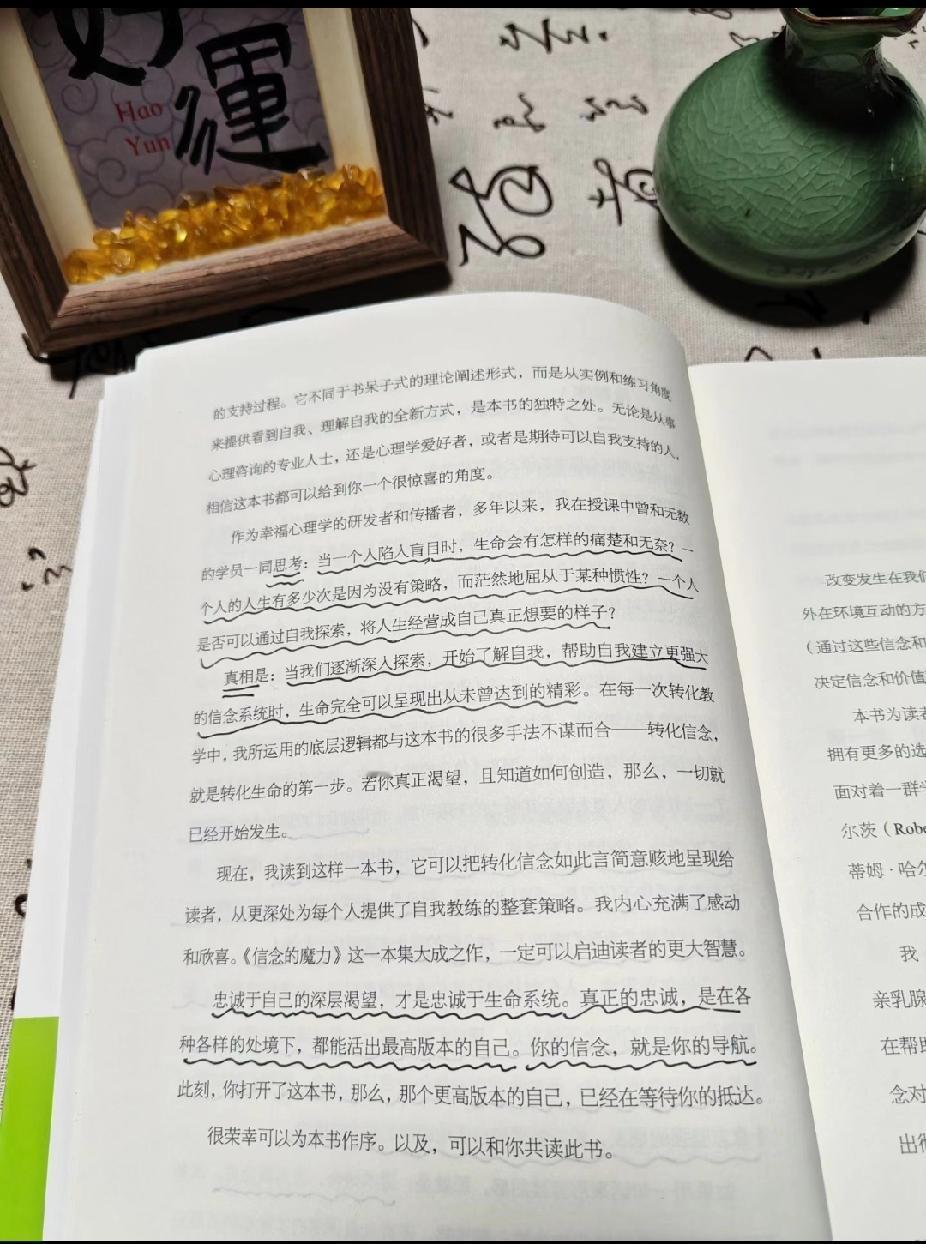 好運
Hao
Yun
的支持过程。它不同于书呆子式的理论阐述形式，而是从实例和练习角度
来提供看到自我、理解自我的全新方式，是本书的独特之处。无论是从事
心理咨询的专业人士，还是心理学爱好者，或者是期待可以自我支持的人，
相信这本书都可以给到你一个很惊喜的角度。
作为幸福心理学的研发者和传播者，多年以来，我在授课中曾和无数
的学员一同思考：当一个人陷入盲目时，生命会有怎样的痛楚和无奈？一
个人的人生有多少次是因为没有策略，而茫然地屈从于某种惯性？一个人
是否可以通过自我探索，将人生经营成自己真正想要的样子？
真相是：当我们逐渐深入探索，开始了解自我，帮助自我建立更强大
的信念系统时，生命完全可以呈现出从未曾达到的精彩。在每一次转化教
学中，我所运用的底层逻辑都与这本书的很多手法不谋而合——转化信念，
就是转化生命的第一步。若你真正渴望，且知道如何创造，那么，一切就
已经开始发生。
现在，我读到这样一本书，它可以把转化信念如此言简意赅地呈现给
读者，从更深处为每个人提供了自我教练的整套策略。我内心充满了感动
和欣喜。《信念的魔力》这一本集大成之作，一定可以启迪读者的更大智慧。
忠诚于自己的深层渴望，才是忠诚于生命系统。真正的忠诚，是在各
种各样的处境下，都能活出最高版本的自己。你的信念，就是你的导航。
此刻，你打开了这本书，那么，那个更高版本的自己，已经在等待你的抵达。
很荣幸可以为本书作序。以及，可以和你共读此书。
改变发生在我们
外在环境互动的方
（通过这些信念和
决定信念和价值
本书为读者
拥有更多的选
面对着一群学
尔茨（Robe
蒂姆·哈尔
合作的成
我
亲乳腺
在帮助
念对
出彻